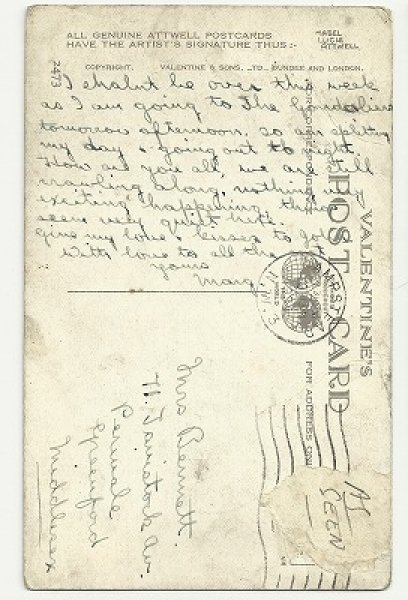 ALL GENUINE ATTWELL POSTCARDS
HAVE THE ARTIST'S SIGNATURE THUS:-
MABEL
LUCIE
ATTWELL
COPYRIGHT. VALENTINE & SONS, LTD. DUNDEE AND LONDON.
2473
I shalnt be over this week
as I am going to The Gondoliers
tomorrow afternoon, so am spliting
my day & going out to night.
How are you all, we are still
crawling along, nothing very
exciting happening, things
seem very quiet here.
Give my love & kisses to
With love to all the
yours
Marg
VALENTINE'S
POST CARD
FOR ADDRESS ONLY
Mrs Bennett
Tavistock Av.
Perivale
Greenford
Middlesex
AS
SEEN